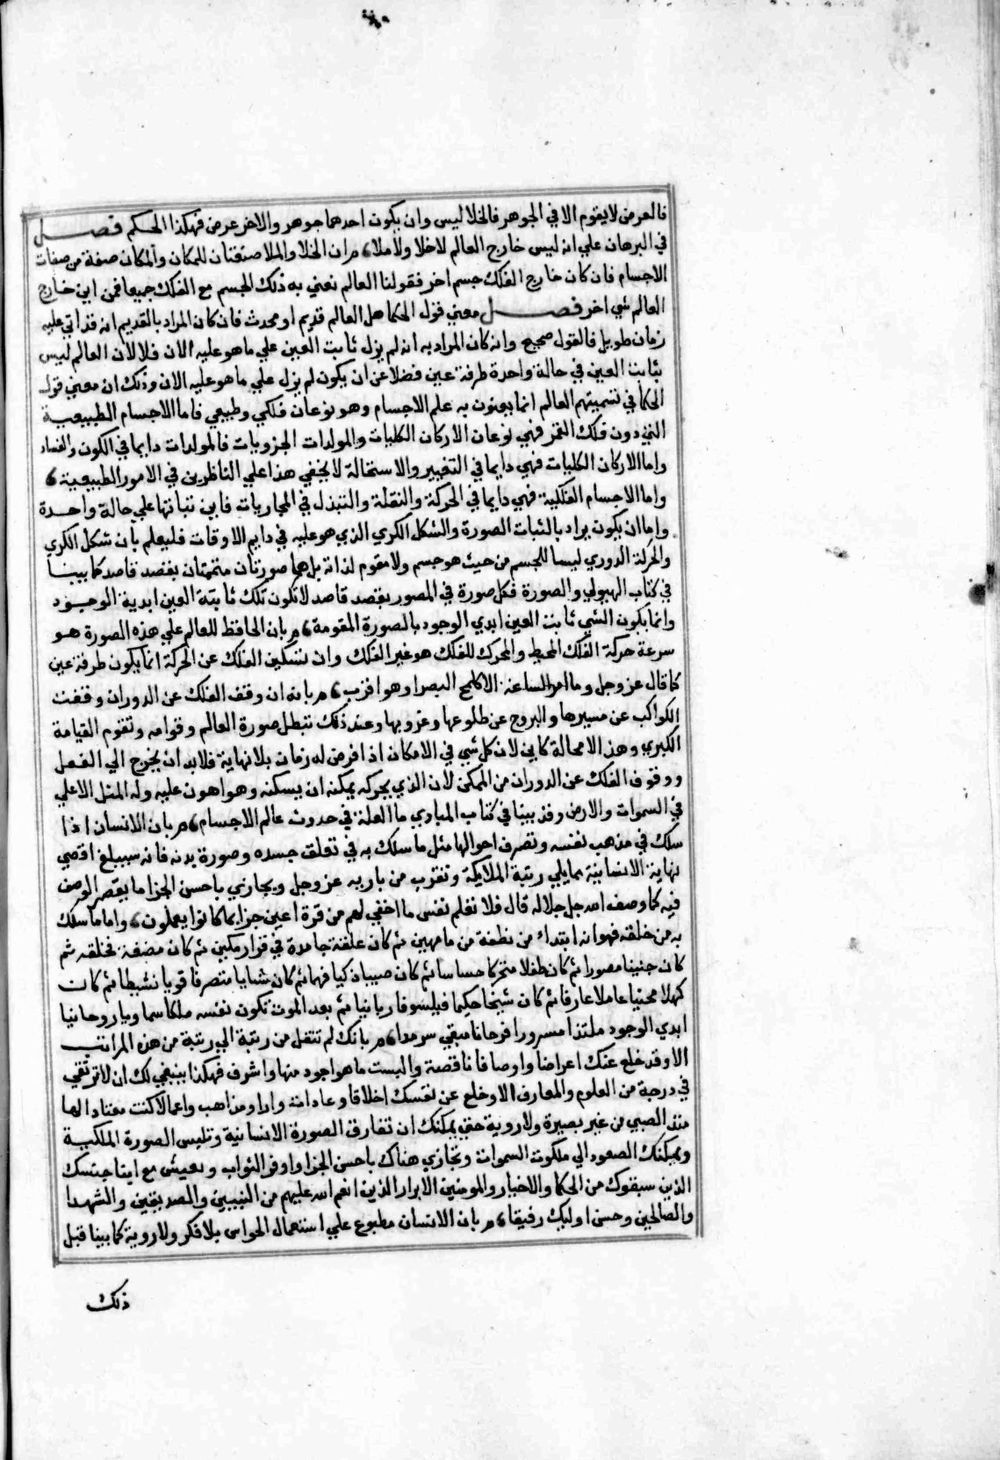 فالعرض لا يقوم الا في الجوهر فالخلا ليس وان يكون احدهما جوهر والاخر عرض فهكذا الحكم فصل
في البرهان علي انه ليس خارج العالم لا خلا ولا ملا، م ان الخلا والملا صفتان للمكان والمكان صفة من صفات
الاجسام فان كان خارج الفلك جسم اخر فقولنا العالم نعني به ذلك الجسم مع الفلك جميعا فمن اين خارج
العالم شي اخر فصل معني قول الحكما هل العالم قديم او محدث فان كان المراد بالقديم انه قد اتي عليه
زمان طويل فالقول صحيح وان كان المراد به انه لم يزل ثابت العين علي ما هو عليه الان فلا لان العالم ليس
بثابت العين في حالة واحدة طرفة عين فضلا عن ان يكون لم يزل علي ما هو عليه الان وذلك ان معني قول
الحكما في تسميتهم العالم انما يعنون به علم الاجسام وهو نوعان فلكي وطبيعي فاما الاجسام الطبيعية
التي دون فلك القمر فهي نوعان الاركان الكليات والمولدات الجزويات فالمولدات دايما في الكون والفساد
واما الاركان الكليات فهي دايما في التغيير والاستحالة لا يخفي هذا علي الناظرين في الامور الطبيعية،
واما الاجسام الفلكية فهي دايما في الحركة والنقلة والتبدل في المجاريات فاين ثباتها علي حالة واحدة
واما ان يكون يراد بالثبات الصورة والشكل الكري الذي هو عليه في دايم الاوقات فليعلم بان شكل الكري
والحركة الدوري ليسا للجسم من حيث هو جسم ولا مقوم لذاته بل هما صورتان متممتان بقصد قاصد كما بينا
في كتاب الهيولي والصورة فكل صورة في المصور بقصد قاصد لا تكون تلك ثابتة العين ابدية الوجود
وانما يكون الشي ثابت العين ابدي الوجود بالصورة المقومة، م بان الحافظ للعالم علي هذه الصورة هو
سرعة حركة الفلك المحيط والمحرك للفلك هو غير الفلك وان تسكين الفلك عن الحركة انما يكون طرفة عين
كما قال عز وجل وما امر الساعة الا كلمح البصر او هو اقرب، م بانه ان وقف الفلك عن الدوران وقفت
الكواكب عن مسيرها والبروج عن طلوعها وغروبها وعند ذلك تبطل صورة العالم وقوامه وتقوم القيامة
الكبري وهذا لا محالة كاين لان كل شي في الامكان اذا فرض له زمان بلا نهاية فلا بد ان يخرج الي الفعل
ووقوف الفلك عن الدوران من الممكن لان الذي يحركه يمكنه ان يسكنه وهو اهون عليه وله المثل الاعلي
في السموات والارض وقد بينا في كتاب المبادي ما العلة في حدوث عالم الاجسام، م بان الانسان اذا
سلك في مذهب نفسه وتصرف احوالها مثل ما سلك به في تعلق جسده وصورة بدنه فانه سيبلغ اقصي
نهاية الانسانية مما يلي رتبة الملايكة وتقرب من باريه عز وجل ويجازي باحسن الجزا ما يقصر الوصف
فيه كما وصف الله جل جلاله قال فلا تعلم نفس ما اخفي لهم من قرة اعين جزا بما كانوا يعملون، واما ما سلك
به من خلقه فهو انه ابتداء من نطفة من ما مهين ثم كان علقة جامدة في قرار مكين ثم كان مضغة مخلقه ثم
كان جنينا مصورا ثم كان طفلا متحركا حساسا ثم كان صبيا ذكيا فهما ثم كان شابا متصرفا قويا نشيطا ثم كان
كهلا محنيا عاملا عارفا ثم كان شيخا حكيما فيلسوفا ربانيا ثم بعد الموت تكون نفسه ملكا سماويا روحانيا
ابدي الوجود ملتذا مسرورا فرحانا مبقي سرمدا، م بانك لم تنتقل من رتبة الي رتبة من هذه المراتب
الا وقد خلع عنك اعراضا واوصافا ناقصة والبست ما هو اجود منها واشرف فهكذا ينبغي لك ان لا ترتقي
في درجة من العلوم والمعارف الا وخلع عن نفسك اخلاقا وعادات وارا ومذاهب واعمالا كنت معتادا لها
منذ الصبي من غير بصيرة ولا روية حتي يمكنك ان تفارق الصورة الانسانية وتلبس الصورة الملكية
ويمكنك الصعود الي ملكوت السموات وتجازي هناك باحسن الجزا واوفر الثواب وتعيش مع ابنا جنسك
الذين سبقوك من الحكما والاخيار والمومنين الابرار الذين انعم الله عليهم من النبيين والصديقين والشهدا
والصالحين وحسن اوليك رفيقا، م بان الانسان مطبوع علي استعمال الحواس بلا فكر ولا روية كما بينا قبل
ذلك